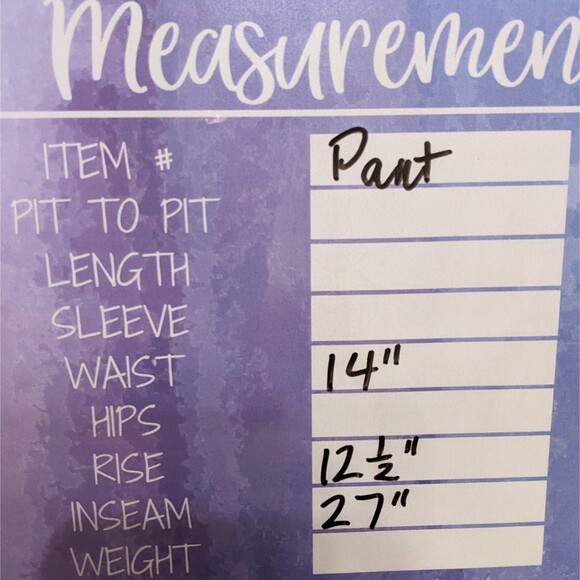 Measuremen
ITEM # Pant
PIT TO PIT
LENGTH
SLEEVE
WAIST 14"
HIPS
RISE 12 1/2"
INSEAM 27"
WEIGHT